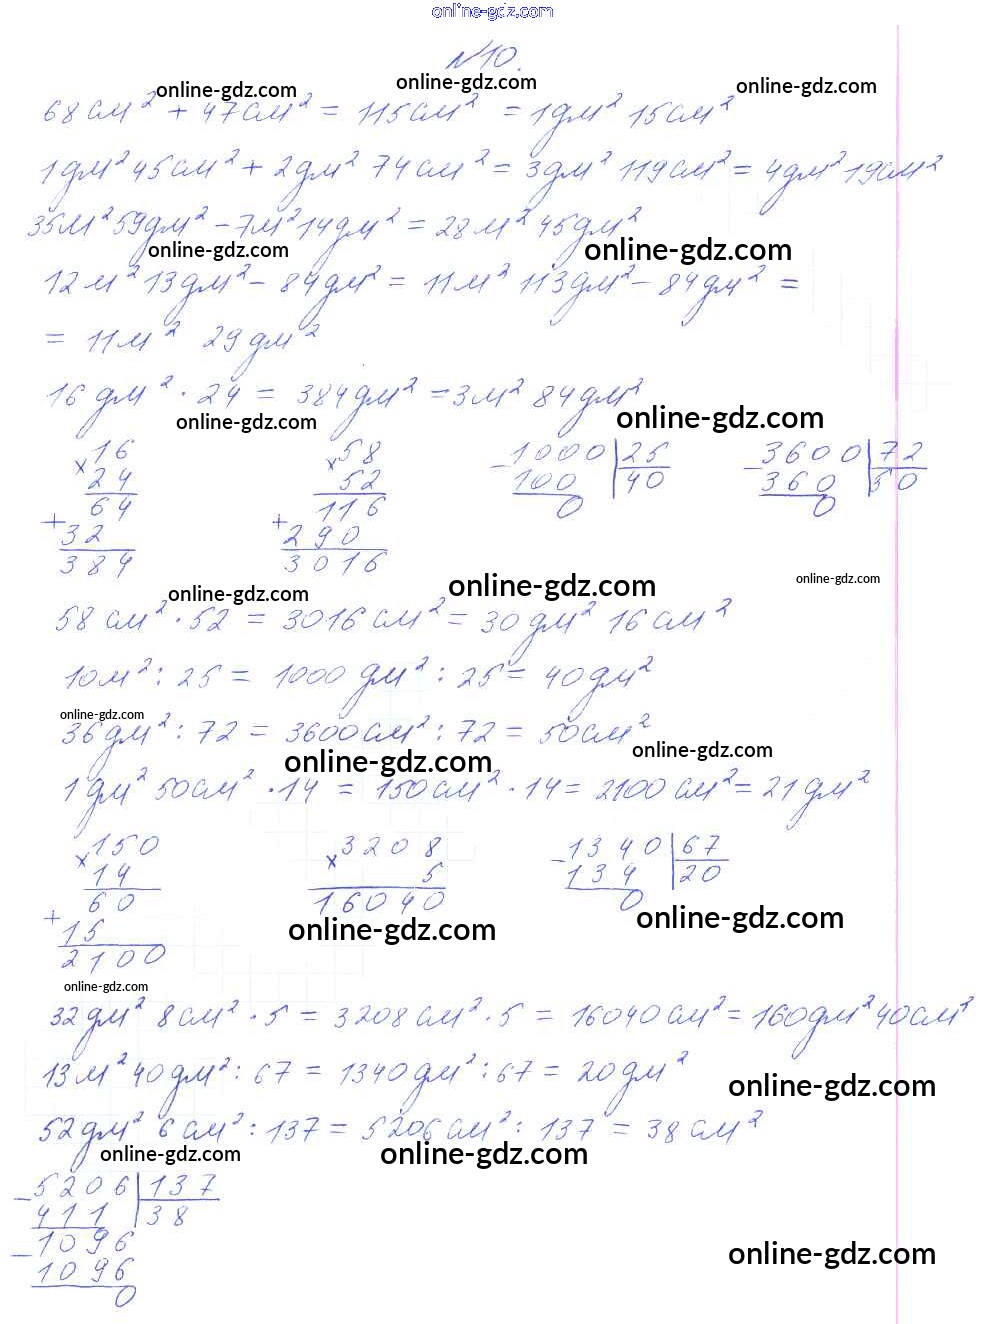 online-gdz.com
№10.
online-gdz.com online-gdz.com online-gdz.com
68см² + 47см² = 115см² = 1дм² 15см²
1дм² 45см² + 2дм² 74см² = 3дм² 119см² = 4дм² 19см²
35м² 59дм² - 7м² 14дм² = 28м² 45дм²
online-gdz.com online-gdz.com
12м² 13дм² - 84дм² = 11м² 113дм² - 84дм² =
= 11м² 29дм²
16дм² · 24 = 384дм² = 3м² 84дм²
online-gdz.com online-gdz.com
× 16 × 58 - 1000 | 25 - 3600 | 72
24 52 100 | 40 360 | 50
64 116 0 0
+ 32 + 290
384 3016
online-gdz.com online-gdz.com online-gdz.com
58см² · 52 = 3016см² = 30дм² 16см²
10м² : 25 = 1000дм² : 25 = 40дм²
online-gdz.com
36дм² : 72 = 3600см² : 72 = 50см²
online-gdz.com online-gdz.com
1дм² 50см² · 14 = 150см² · 14 = 2100см² = 21дм²
× 150 × 3208 - 1340 | 67
14 5 134 | 20
60 16040 0
+ 15
2100
online-gdz.com online-gdz.com
online-gdz.com
32дм² 8см² · 5 = 3208см² · 5 = 16040см² = 160дм² 40см²
13м² 40дм² : 67 = 1340дм² : 67 = 20дм²
online-gdz.com
52дм² 6см² : 137 = 5206см² : 137 = 38см²
online-gdz.com online-gdz.com
- 5206 | 137
411 | 38
- 1096
1096
0
online-gdz.com